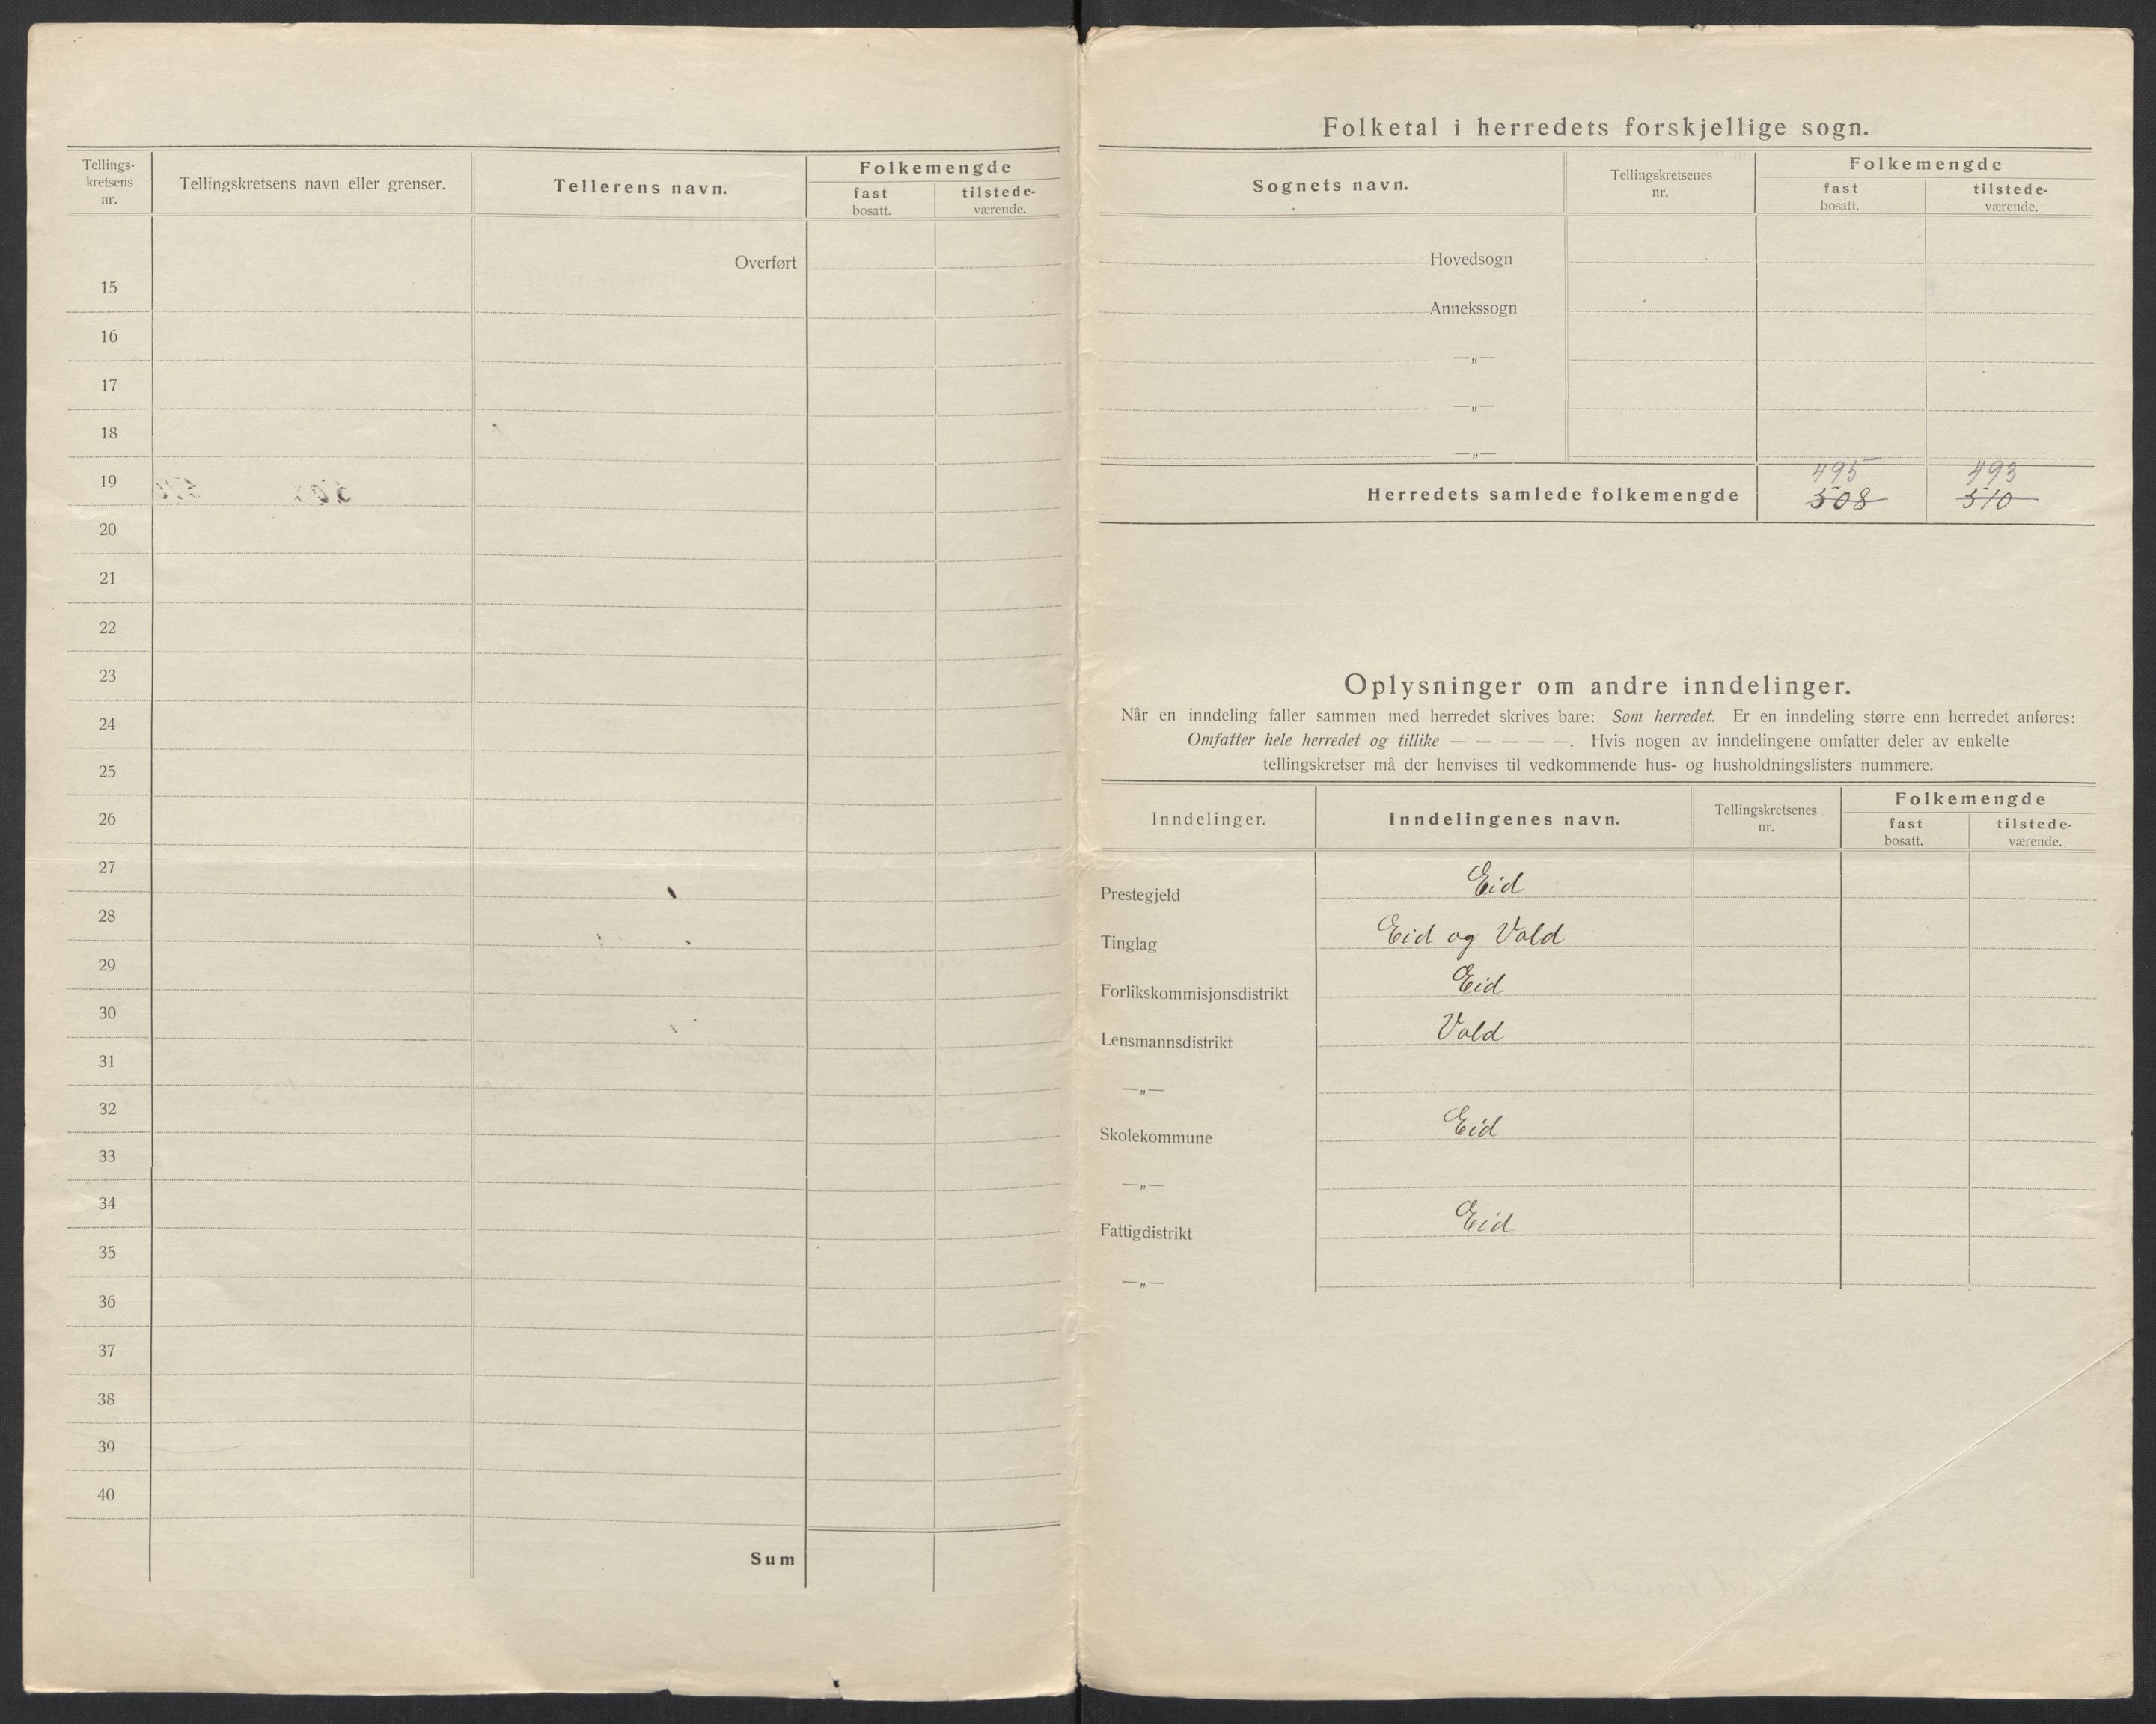 Tellings-
kretsens
nr.
Tellingskretsens navn eller grenser.
Tellerens navn.
Folkemengde
fast
bosatt.
tilstede-
værende.
Overført
15
16
17
18
19
20
21
22
23
24
25
26
27
28
29
30
31
32
33
34
35
36
37
38
39
40
Sum
Folketal i herredets forskjellige sogn.
Sognets navn.
Tellingskretsenes
nr.
Folkemengde
fast
bosatt.
tilstede-
værende.
Hovedsogn
Annekssogn
—„—
—„—
—„—
495 493
Herredets samlede folkemengde 508 510
Oplysninger om andre inndelinger.
Når en inndeling faller sammen med herredet skrives bare: Som herredet. Er en inndeling større enn herredet anføres:
Omfatter hele herredet og tillike — — — — —. Hvis nogen av inndelingene omfatter deler av enkelte
tellingskretser må der henvises til vedkommende hus- og husholdningslisters nummere.
Inndelinger.
Inndelingenes navn.
Tellingskretsenes
nr.
Folkemengde
fast
bosatt.
tilstede-
værende.
Prestegjeld Eid
Tinglag Eid og Vold
Forlikskommisjonsdistrikt Eid
Lensmannsdistrikt Vold
—„—
Skolekommune Eid
—„—
Fattigdistrikt Eid
—„—